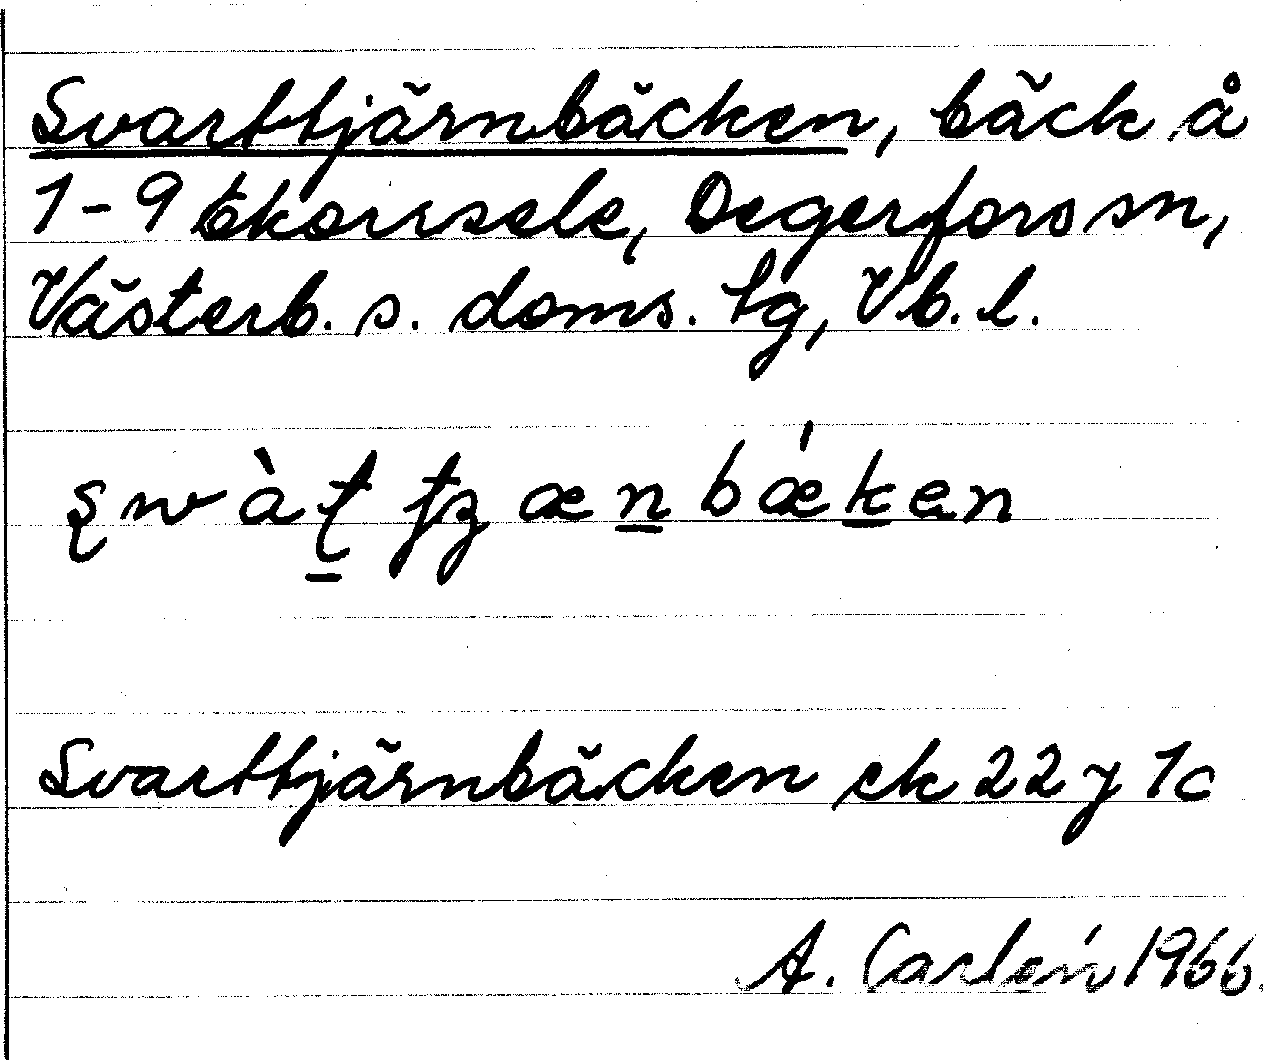 Svarttjärnbäcken, bäck å
1-9 Ekorrsele, Degerfors sn,
Västerb. s. doms. tg, Vb. l.
Svarttjärnbäcken ek 22 y 1c
A. Carlén 1966.